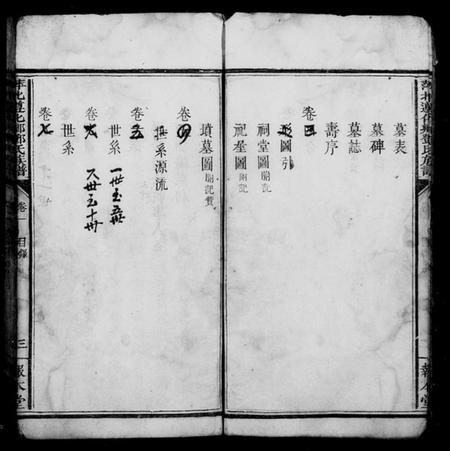 墓表
墓碑
墓誌
壽序
卷三
圖引
祠堂圖 附記
祀產圖 附記
墳墓圖 附記贊
卷四
世系源流
卷五
世系 一世至五世
卷六
世系 六世至十世
卷七
鄧氏族譜
卷一
目錄
三
報本堂